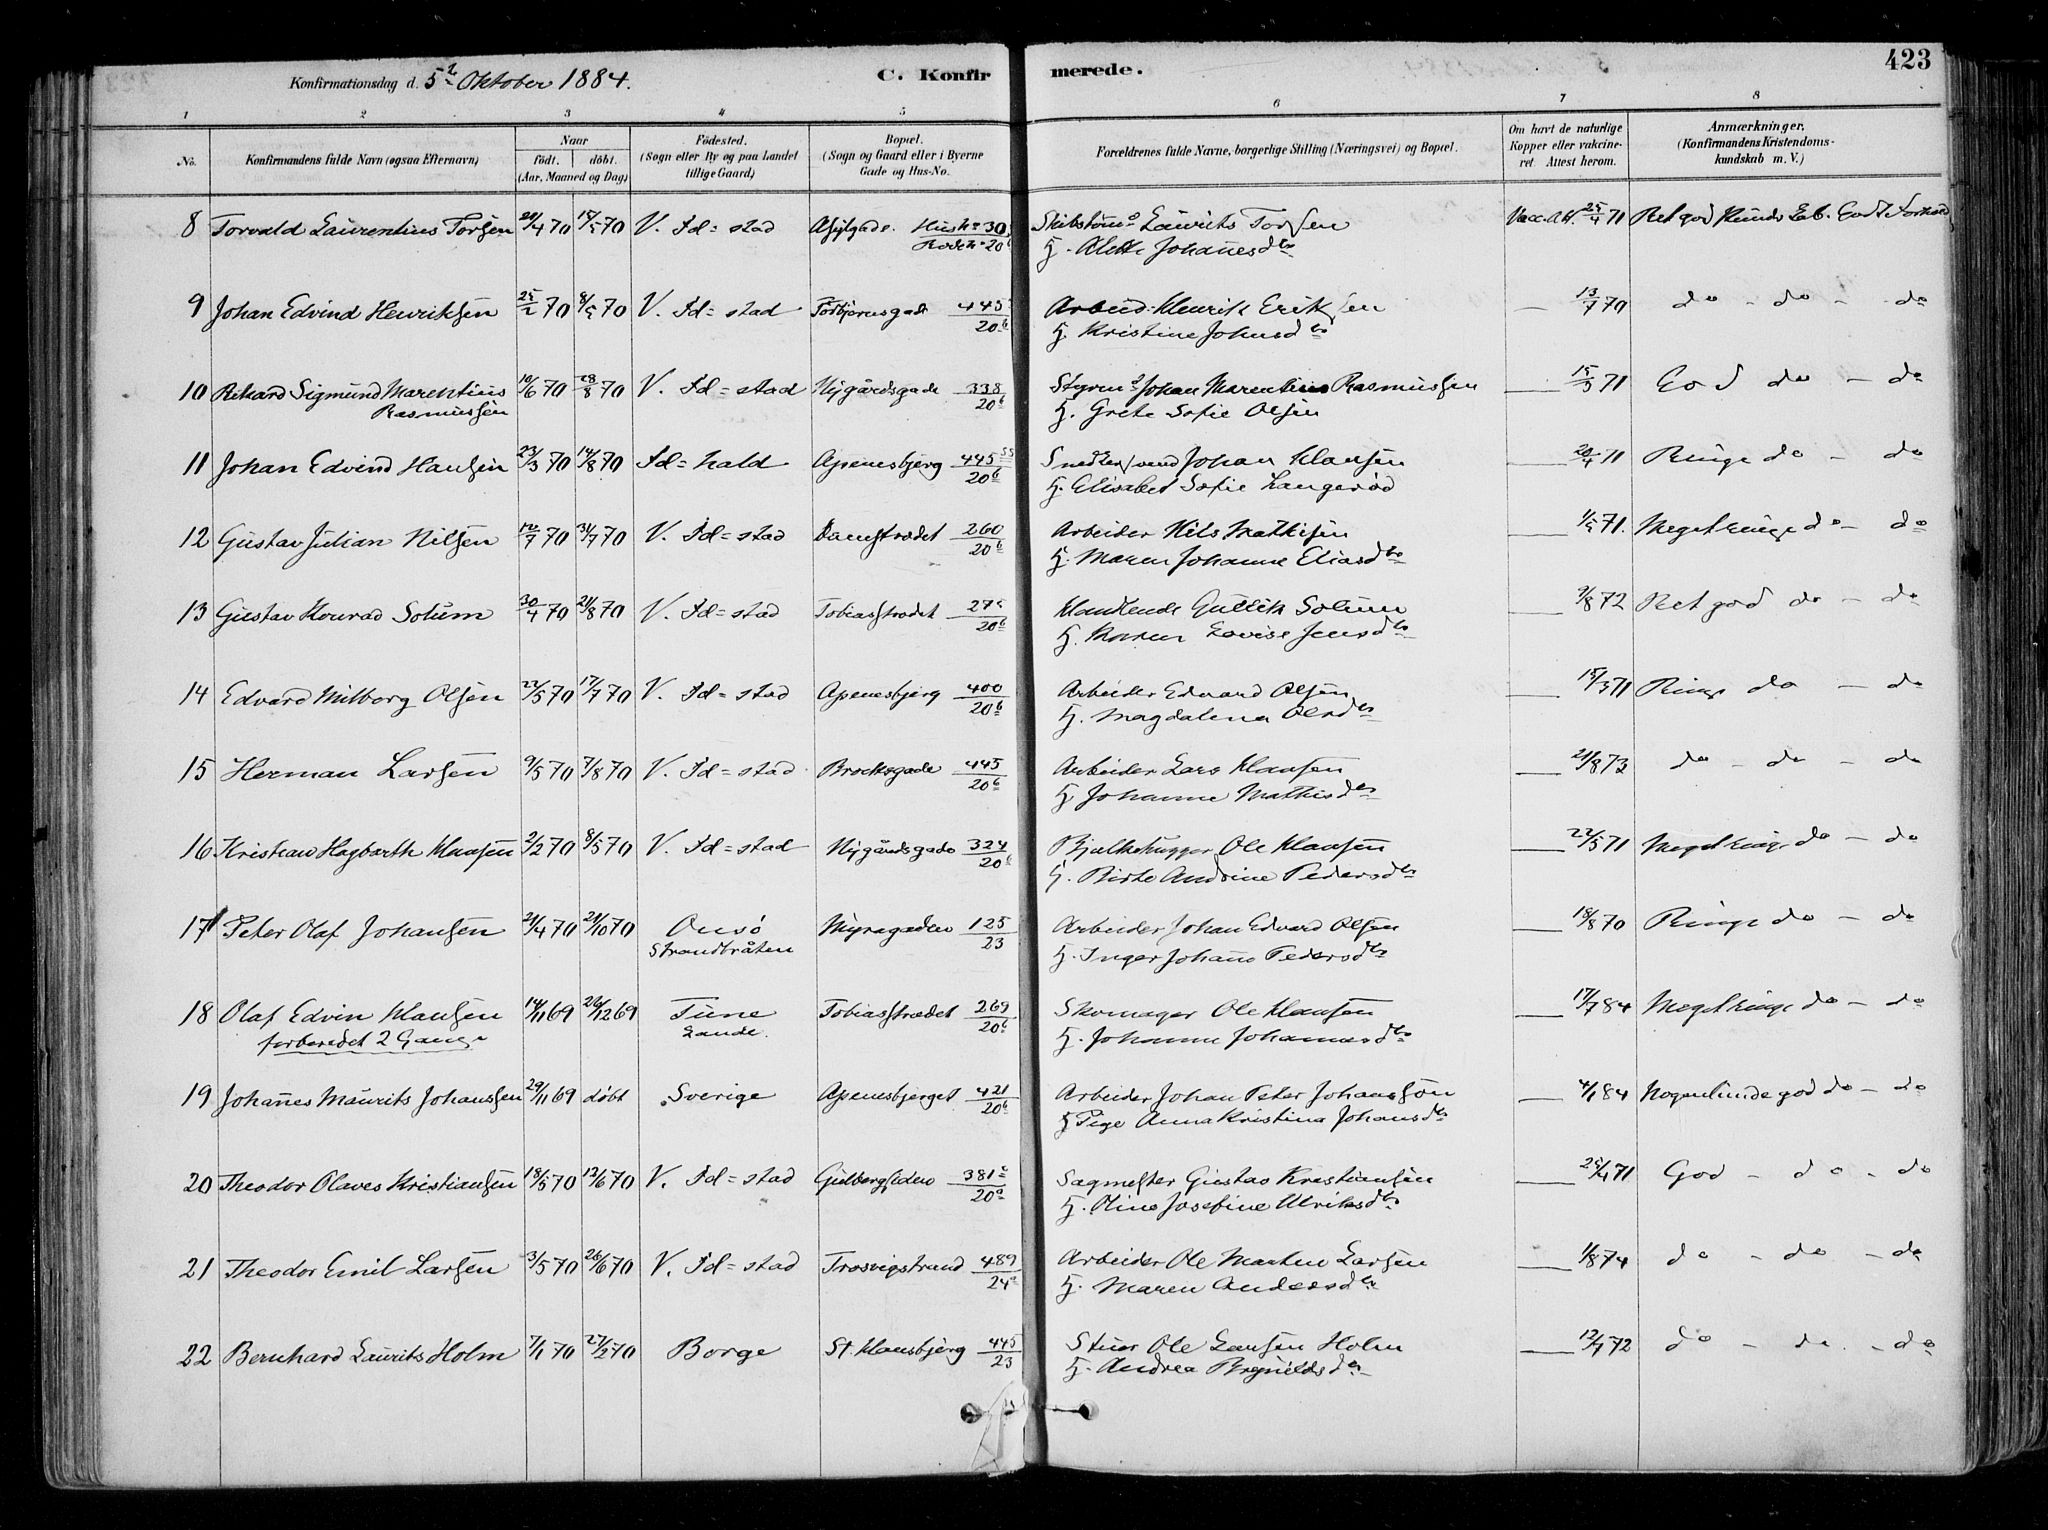 Konfirmationsdag d. 5te Oktober 1884. C. Konfirmerede. 423
1 2 3 4 5 6 7 8
No. Konfirmandens fulde Navn (ogsaa Efternavn)
Naar født. døbt. (Aar, Maaned og Dag)
Fødested. (Sogn eller By og paa Landet tillige Gaard)
Bopæl. (Sogn og Gaard eller i Byerne Gade og Hus-No.
Forældrenes fulde Navne, borgerlige Stilling (Næringsvei) og Bopæl.
Om havt de naturlige Kopper eller vaccineret. Attest herom.
Anmærkninger. (Konfirmandens Kristendomskundskab m. V.)
8 Torvald Laurentius Torsen 29/4 70 15/5 70 V. Fd=stad Asylgade. Husn. 30 Roden. 20b Laurits Torsen Vacc. Att. 25/4 71 Ret god Kunds.
H. Alette Johannesdtr
9 Johan Edvind Henriksen 25/2 70 8/5 70 V. Fd=stad Torbjørnsgade 445/20b Arbeid. Henrik Eriksen — 13/7 70 do - do - do
H. Kristine Johnsdtr
10 Rikard Sigmund Marentius Rasmussen 10/6 70 28/8 70 V. Fd=stad Nygårdsgade 338/20b Styrm. Johan Marentius Rasmussen — 15/3 71 God do - do
H. Grete Sofie Olsen
11 Johan Edvind Hansen 23/3 70 14/8 70 Fd=hald Apenesbjerg 445 55/20b Snedkersvend Johan Hansen — 20/4 71 Ringe do - do
H. Elisabet Sofie Langerød
12 Gustav Julian Nilsen 12/7 70 31/7 70 V. Fd=stad Damstrædet 260/20b Arbeider Nils Mathisen — 1/5 71. Meget ringe do - do
H. Maren Johanne Eliasdtr
13 Gustav Konrad Solum 30/4 70 21/8 70 V. Fd=stad Tobiasstrædet 275/20b Handlende Gullik Solum — 9/8 72 Ret god do - do
H. Maren Lovise Jensdtr
14 Edvard Milborg Olsen 22/5 70 17/7 70 V. Fd=stad Apenesbjerg 400/20b Arbeider Edvard Olsen — 15/3 71 Ringe do - do
H. Magdalena Olsdtr
15 Herman Larsen 9/5 70 7/8 70 V. Fd=stad Brocksgade 445/20b Arbeider Lars Hansen — 21/8 73 do - do - do
H. Johanne Mathisdtr
16 Kristian Hagbarth Hansen 2/2 70 8/5 70 V. Fd=stad Nygårdsgade 324/20b Bjælkehugger Ole Hansen — 22/5 71 Meget ringe do - do
H. Birte Andrine Pedersdtr
17 Peter Olaf Johansen 21/4 70 21/10 70 Onsø Strandbråten Myragaden 125/23 Arbeider Johan Edvard Olsen — 18/8 70 Ringe do - do
H. Inger Johanne Pedersdtr
18 Olaf Edvin Hansen 14/11 69 26/12 69 Tune Lande. Tobiasstrædet 269/20b Skomager Ole Hansen — 17/7 84 Meget ringe do - do
forberedet 2 Gange H. Johanne Johannesdtr
19 Johanes Maurits Johanssen 29/11 69 døbt Sverige Apenesbjerget 421/20b Arbeider Johan Peter Johansson — 4/1 84 Nogenlunde god do - do
H Pige Anna Kristina Johansdtr
20 Theodor Olaves Kristiansen 18/5 70 12/6 70 V. Fd=stad Gulbergsiden 381c/20a Sagmester Gustav Kristiansen — 25/4 71 God - do - do
H. Oline Josefine Ulriksdtr
21 Theodor Emil Larsen 3/5 70 26/6 70 V. Fd=stad Trosvigstrand 489/24a Arbeider Ole Martin Larsen — 1/8 74 do - do - do
H. Maren Andersdtr
22 Bernhard Laurits Holm 7/1 70 27/2 70 Borge St. Hansbjerg 445/23 Stuer Ole Larsen Holm — 12/7 72 do - do - do
H. Andrea Brynildsdtr